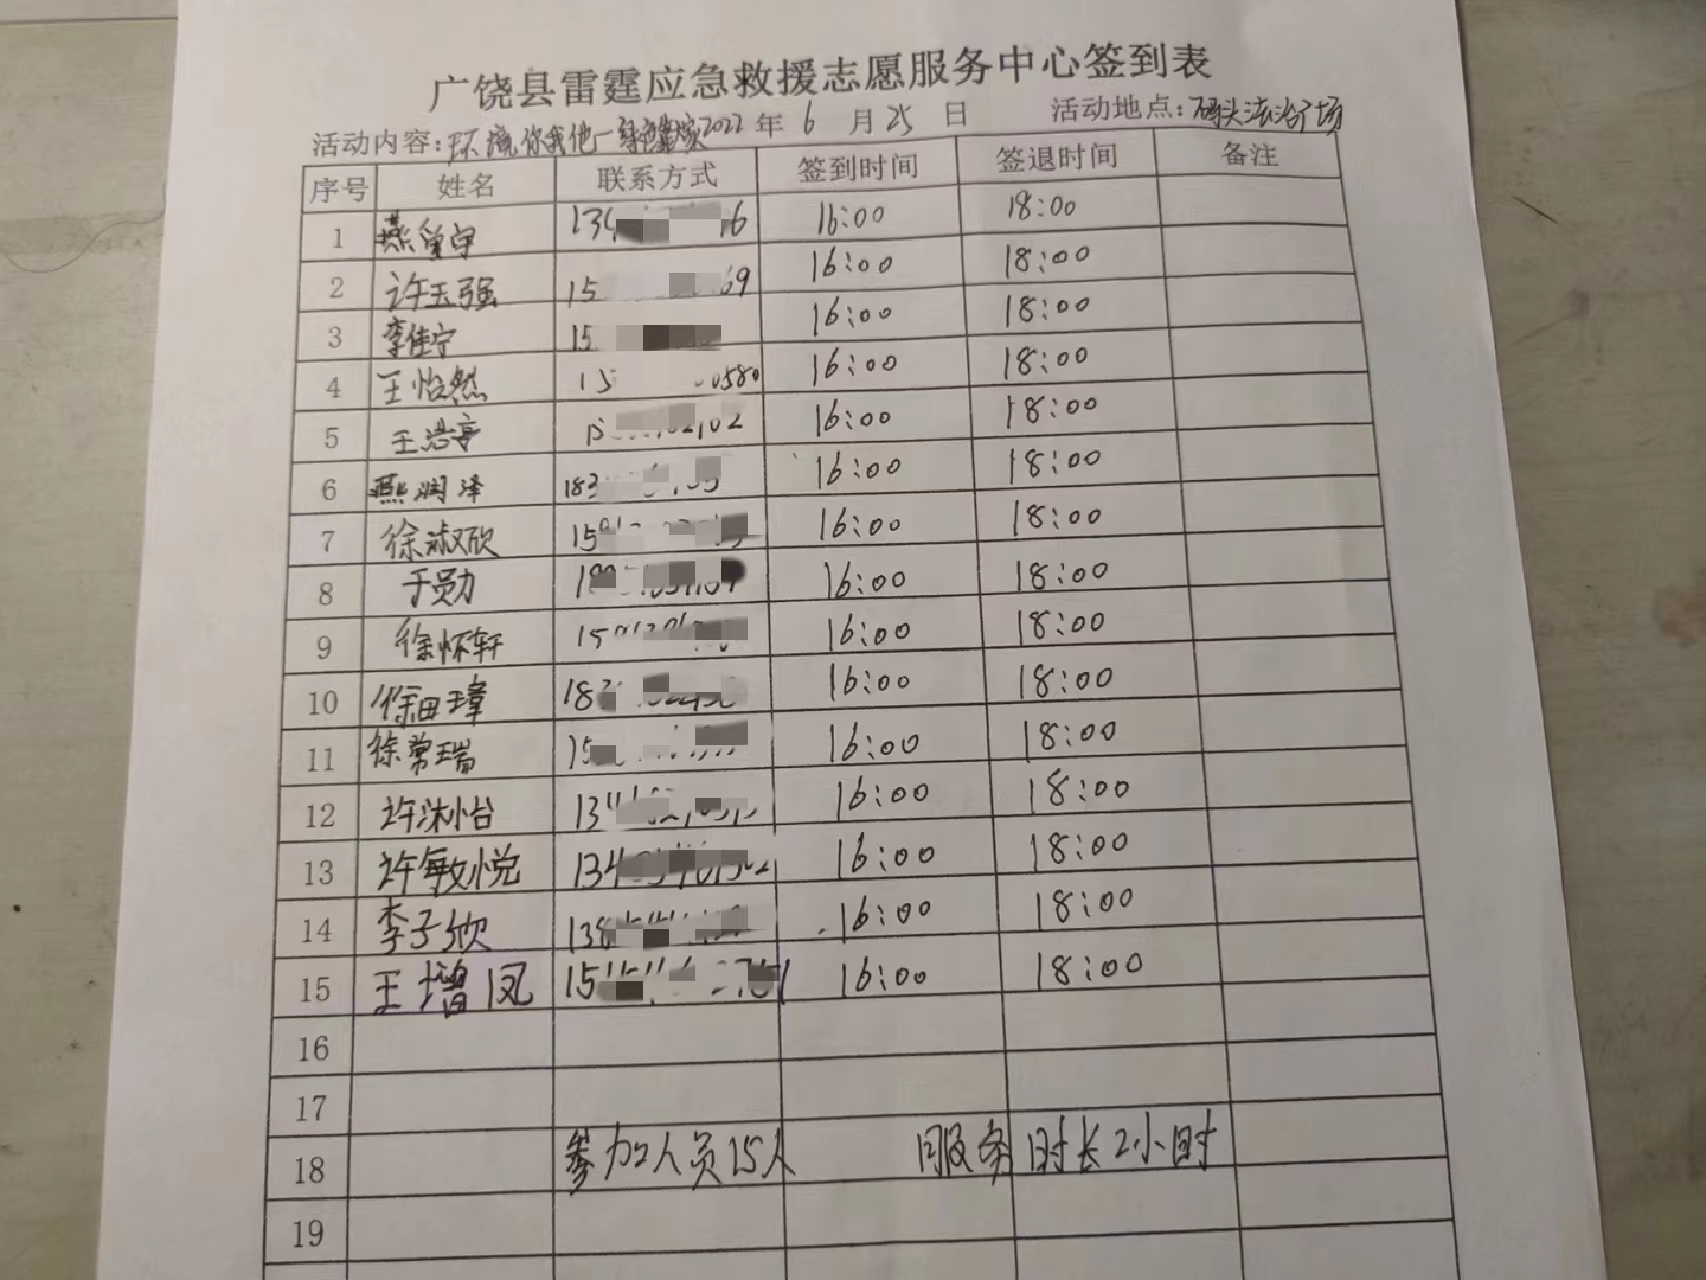 广饶县雷霆应急救援志愿服务中心签到表
活动内容:环境你我他一 2022年6月25日 活动地点:码头法治广场
序号 姓名 联系方式 签到时间 签退时间 备注
1 燕 宇 134 16 16:00 18:00
2 许玉强 15 69 16:00 18:00
3 李佳宁 15 16:00 18:00
4 王怡然 15 0580 16:00 18:00
5 王浩亭 15 02 16:00 18:00
6 燕润泽 183 16:00 18:00
7 徐淑欣 15 16:00 18:00
8 于勋力 18 16:00 18:00
9 徐怀轩 15 16:00 18:00
10 徐田璋 18 16:00 18:00
11 徐常瑞 15 16:00 18:00
12 许沐怡 134 16:00 18:00
13 许敏悦 134 16:00 18:00
14 李子欣 138 16:00 18:00
15 王增凤 15 16:00 18:00
16
17
18 参加人员15人 服务时长2小时
19